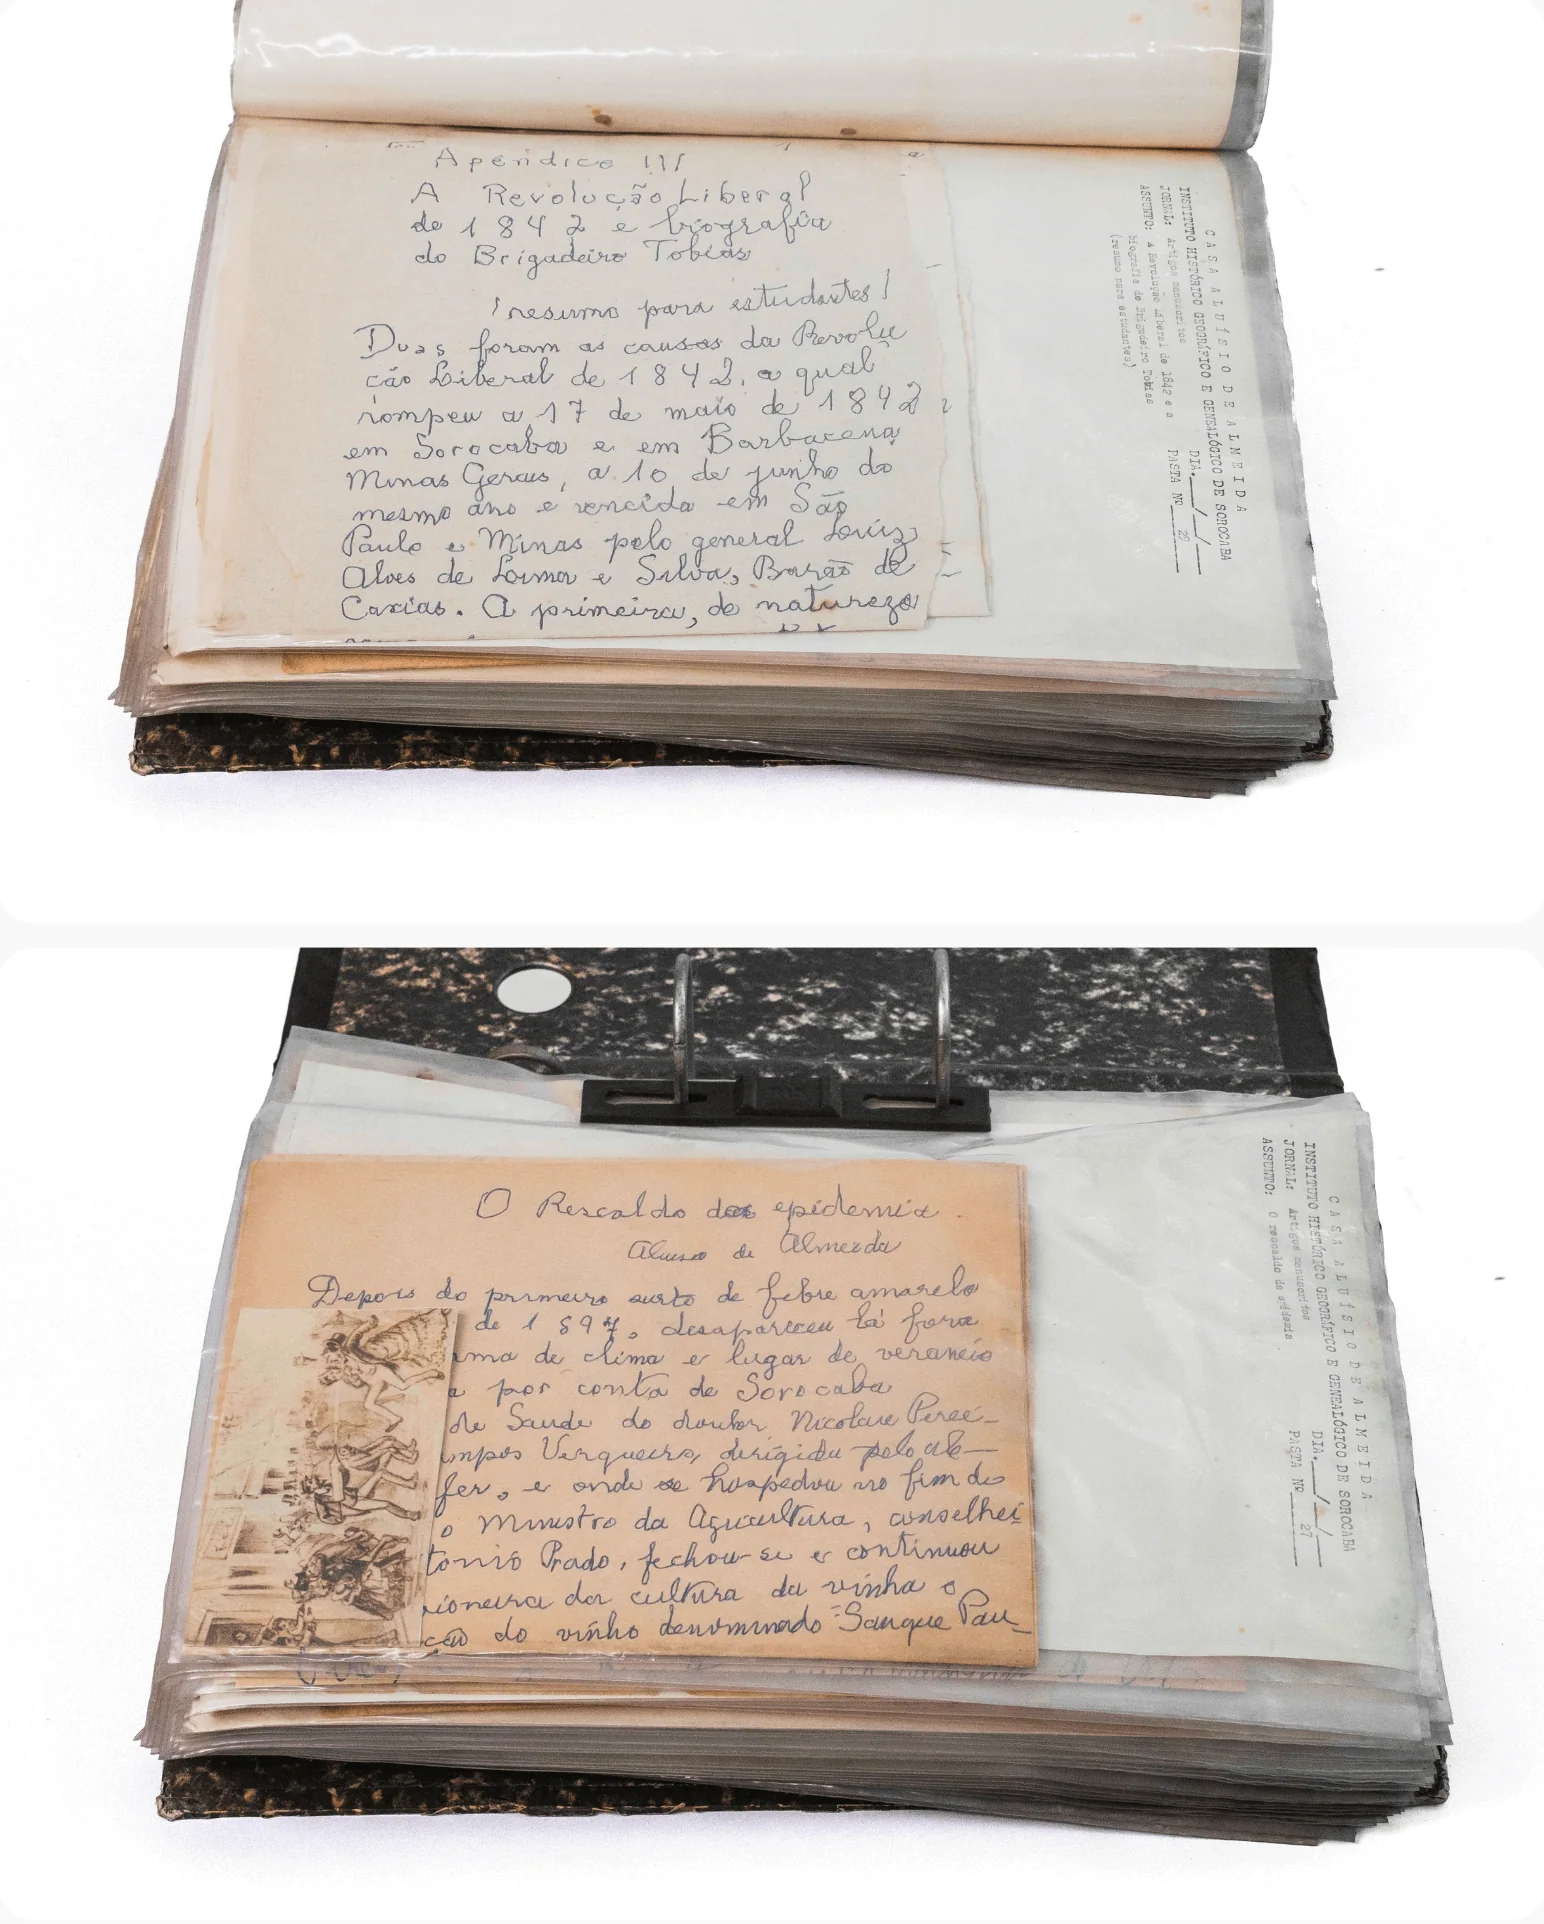 Apêndice III
A Revolução Liberal
de 1842 e biografia
do Brigadeiro Tobias
(resumo para estudantes)
Duas foram as causas da Revolu
ção Liberal de 1842, a qual
rompeu a 17 de maio de 1842
em Sorocaba e em Barbacena
Minas Gerais, a 10 de junho do
mesmo ano e vencida em São
Paulo e Minas pelo general Louiz
Alves de Loima e Silva, Barão de
Caxias. A primeira, de natureza
CASA ALUÍSIO DE ALMEIDA
INSTITUTO HISTÓRICO GEOGRÁFICO E GENEALÓGICO DE SOROCABA
JORNAL: Artigos manuscritos DIA.___/___/___
ASSUNTO: A Revolução Liberal de 1842 e a PASTA Nº 29
biografia do Brigadeiro Tobias
(resumo para estudantes)
O Rescaldo da epidemia.
Aluisio de Almeida
Depois do primeiro surto de febre amarela
de 1897, desapareceu lá fora
ama de clima e lugar de veraneio
a por conta de Sorocaba
de Saude do doutor Nicolau Perei-
mpos Vergueiro, dirigida pelo ale-
fer, e onde se hospedou no fim do
o Ministro da Agricultura, conselhei
tonio Prado, fechou-se e continuou
ioneira da cultura da vinha e
ção do vinho denominado "Sangue Pau-
CASA ALUÍSIO DE ALMEIDA
INSTITUTO HISTÓRICO GEOGRÁFICO E GENEALÓGICO DE SOROCABA
JORNAL: Artigos manuscritos DIA.___/___/___
ASSUNTO: O rescaldo da epidemia PASTA Nº 27